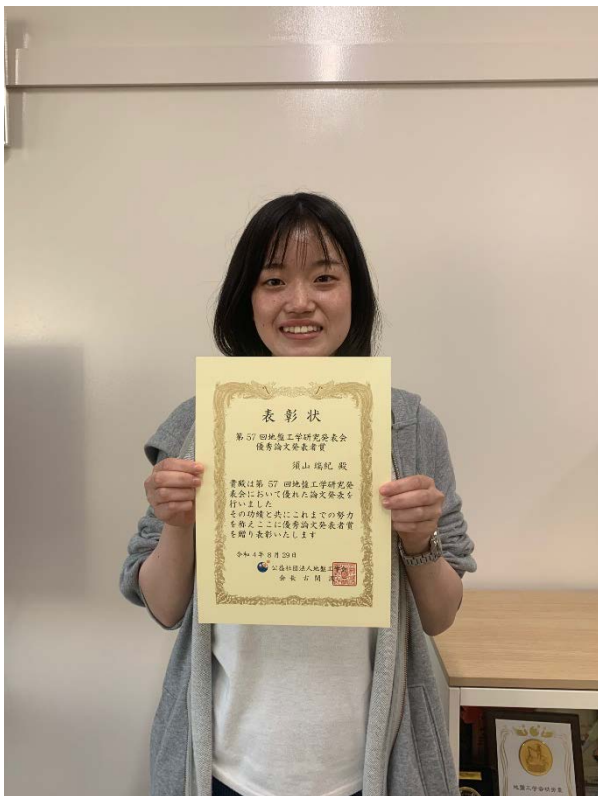 表彰状
第57回地盤工学研究発表会
優秀論文発表者賞
須山瑞紀 殿
貴殿は第 57 回地盤工学研究発
表会において優れた論文発表を
行いました
その功績と共にこれまでの努力
を称えここに優秀論文発表者賞
を贈り表彰いたします
令和4年8月29日
公益社団法人地盤工学会
会長 古関